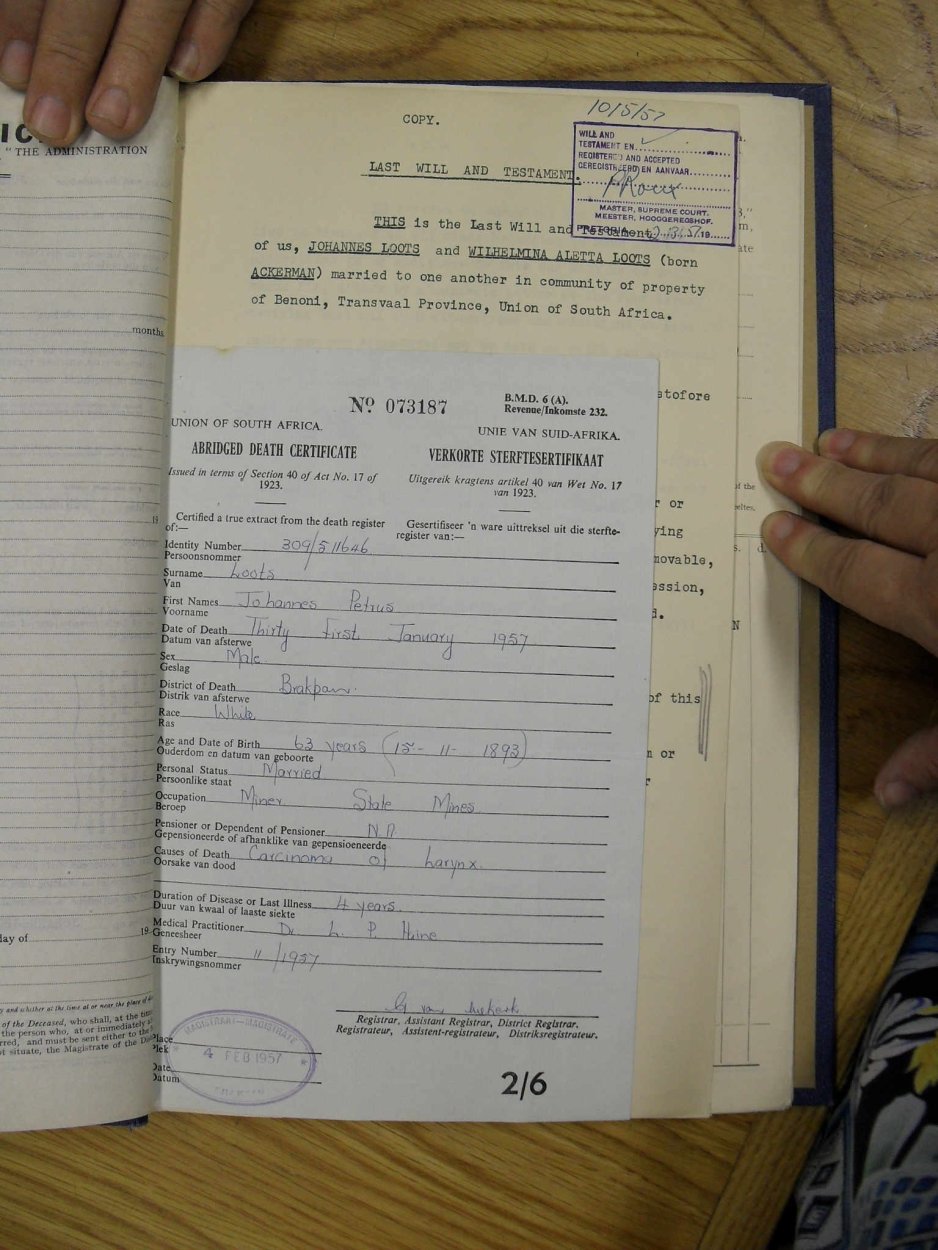 IC
" THE ADMINISTRATION
months.
19
day of
19
y and whether at the time at or near the place of
of the Deceased, who shall, at the
the person who, at or immediately
rred, and must be sent either to the
ot situate, the Magistrate of the
COPY.
10/5/57
WILL AND
TESTAMENT EN
REGISTERED AND ACCEPTED
GEREGISTREERD EN AANVAAR
MASTER, SUPREME COURT.
MEESTER, HOOGGEREGSHOF.
PRETORIA 19
LAST WILL AND TESTAMENT.
THIS is the Last Will and Testament
of us, JOHANNES LOOTS and WILHELMINA ALETTA LOOTS (born
ACKERMAN) married to one another in community of property
of Benoni, Transvaal Province, Union of South Africa.
etofore
r or
ying
movable,
ession,
d.
of this
n or
r
of the
s. d.
N
No 073187
B.M.D. 6 (A).
Revenue/Inkomste 232.
UNION OF SOUTH AFRICA.
UNIE VAN SUID-AFRIKA.
ABRIDGED DEATH CERTIFICATE
VERKORTE STERFTESERTIFIKAAT
Issued in terms of Section 40 of Act No. 17 of
1923.
Uitgereik kragtens artikel 40 van Wet No. 17
van 1923.
Certified a true extract from the death register
of:—
Gesertifiseer 'n ware uittreksel uit die sterfte-
register van:—
Identity Number 309/511646
Persoonsnommer
Surname Loots
Van
First Names Johannes Petrus
Voorname
Date of Death Thirty First January 1957
Datum van afsterwe
Sex Male
Geslag
District of Death Brakpan.
Distrik van afsterwe
Race White
Ras
Age and Date of Birth 63 years (15- 11- 1893)
Ouderdom en datum van geboorte
Personal Status Married.
Persoonlike staat
Occupation Miner State Mines
Beroep
Pensioner or Dependent of Pensioner
Gepensioneerde of afhanklike van gepensioeneerde
Causes of Death Carcinoma of Larynx.
Oorsake van dood
Duration of Disease or Last Illness 4 years.
Duur van kwaal of laaste siekte
Medical Practitioner Dr. L. P. Hine
Geneesheer
Entry Number 11/1957
Inskrywingsnommer
Registrar, Assistant Registrar, District Registrar.
Registrateur, Assistent-registrateur, Distriksregistrateur.
Place
Plek
Date
Datum
MAGISTRAAT—MAGISTRATE
4 FEB 1957
2/6